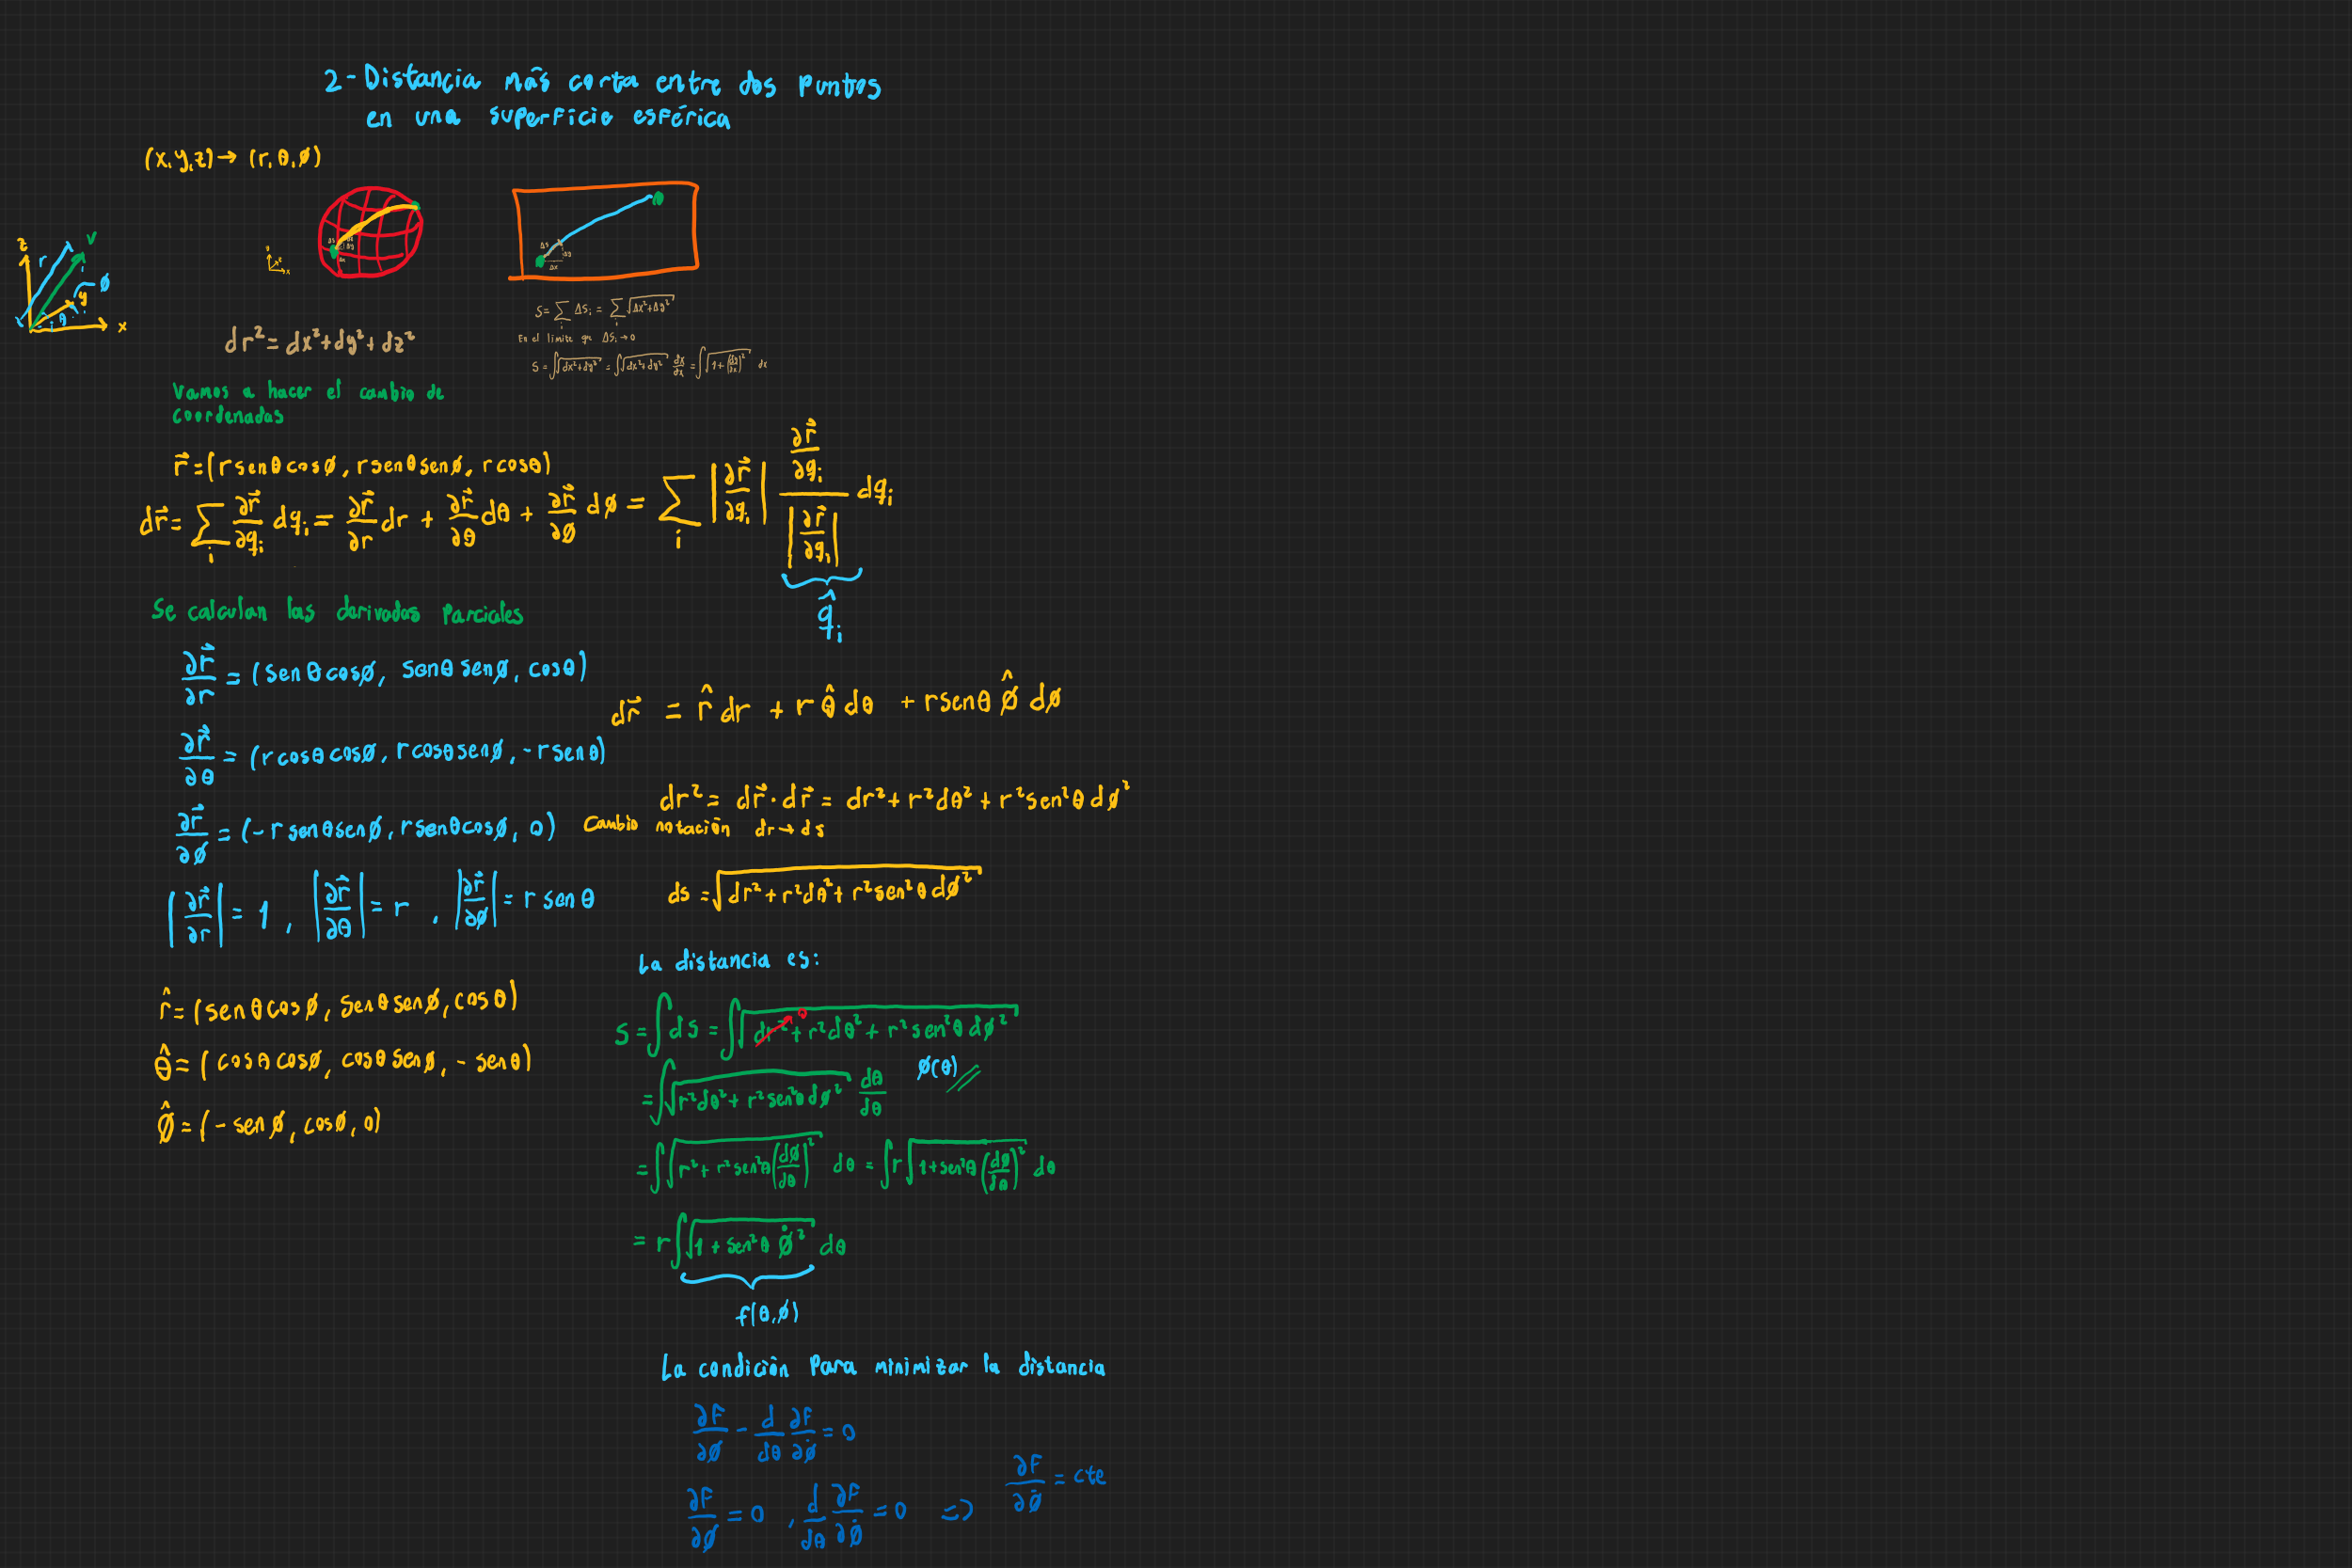 2-Distancia más corta entre dos puntos
en una superficie esférica
(x,y,z)→(r,θ,ø)
z r v ø y θ x
y z x
Δs Δy Δx
Δs Δy Δx
dr²=dx²+dy²+dz²
S=∑_i ΔS_i = ∑_i √(Δx²+Δy²)
En el límite qe ΔS_i→0
S=∫√(dx²+dy²) =∫√(dx²+dy²) dx/dx =∫√(1+(dy/dx)²) dx
Vamos a hacer el cambio de
coordenadas
r⃗=(rsenθcosø, rsenθsenø, rcosθ)
dr⃗= ∑_i ∂r⃗/∂q_i dq_i = ∂r⃗/∂r dr + ∂r⃗/∂θ dθ + ∂r⃗/∂ø dø = ∑_i |∂r⃗/∂q_i| (∂r⃗/∂q_i)/|∂r⃗/∂q_i| dq_i
q̂_i
Se calculan las derivadas parciales
∂r⃗/∂r = (senθcosø, senθsenø, cosθ)
∂r⃗/∂θ = (rcosθcosø, rcosθsenø, -rsenθ)
∂r⃗/∂ø =(-rsenθsenø, rsenθcosø, 0)
|∂r⃗/∂r|= 1 , |∂r⃗/∂θ|= r , |∂r⃗/∂ø|= r senθ
r̂=(senθcosø, senθsenø, cosθ)
θ̂=(cosθcosø, cosθsenø, -senθ)
ø̂=(-senø, cosø, 0)
dr⃗ = r̂ dr + r θ̂ dθ + rsenθ ø̂ dø
dr²= dr⃗·dr⃗= dr²+r²dθ²+r²sen²θdø²
Cambio notación dr→ds
ds =√(dr²+r²dθ²+r²sen²θdø²)
La distancia es:
S=∫ds =∫√(dr²+r²dθ²+r²sen²θdø²)
0
=∫√(r²dθ²+r²sen²θdø²) dθ/dθ
ø(θ)
=∫√(r²+r²sen²θ(dø/dθ)²) dθ =∫r√(1+sen²θ(dø/dθ)²) dθ
= r∫√(1+sen²θ ø̇²) dθ
f(θ,ø)
La condición para minimizar la distancia
∂F/∂ø - d/dθ ∂F/∂ø̇ = 0
∂F/∂ø = 0 , d/dθ ∂F/∂ø̇ = 0 => ∂F/∂ø̇ = cte